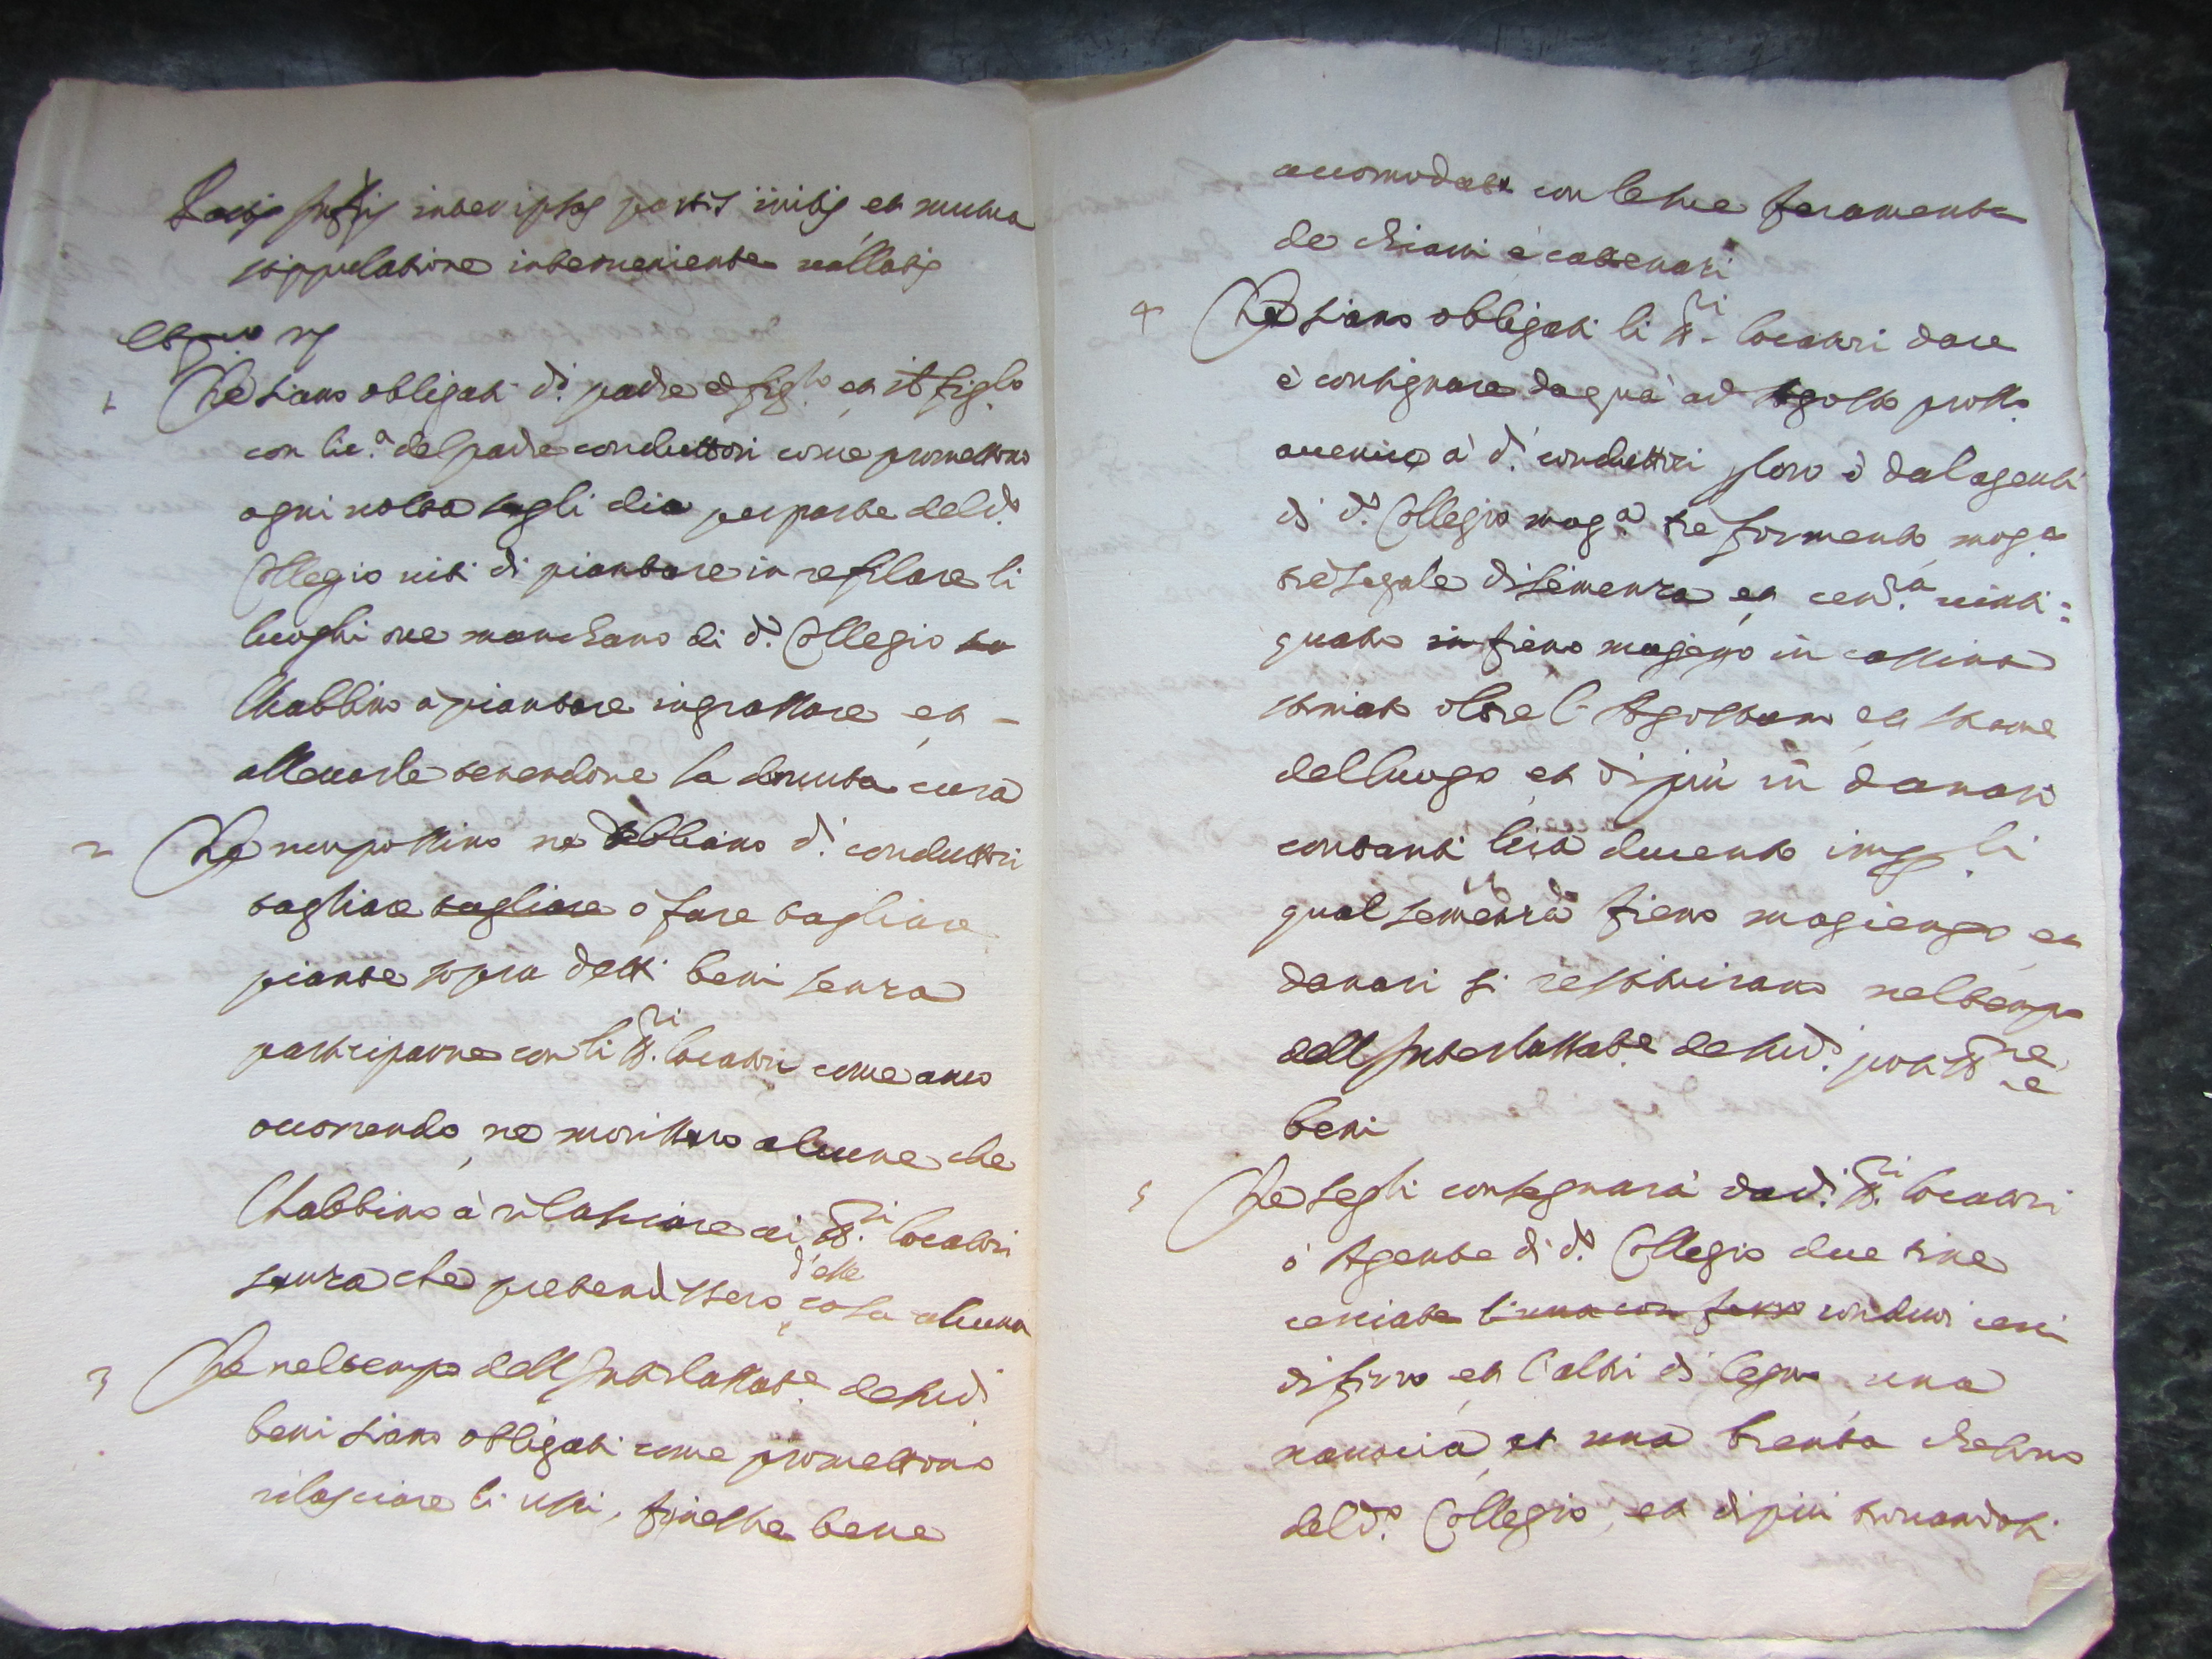 Pactis infrascriptis inter ipsas partes initis et mutua
stippulatione interveniente vallatis
Et primo
1 Che siano obligati d.i padre e figl.o et il figl.o
con lic.a del padre conduttori come promettono
ogni volta segli dia per parte del d.o
Collegio viti di piantare in refilare li
luoghi ove manchano di d.o Collegio
l'habbino a piantare ingrassare et -
allevarle tenendone la dovuta cura
2 Che neupossino ne debbano d.i conduttori
tagliare tagliare o fare tagliare
piante sopra detti beni senza
participarne con li SS.ri locatori come anco
occorrendo, ne morissero alcune che
l'habbino à rilasciare ai SS.ri locatori
senza che pretendessero d'esse cosa alcuna
3 Che nel tempo dell'Interlassat.e de sud.i
beni siano obligati come promettono
rilasciare li ussi, finestre bene
accomodate con le sue feramenta
de chiavi e cattenazzi
4 Che siano obligati li SS.ri locatori dare
è consignare da quà ad Agosto pross.o
avenire à d.i conduttori per loro ò dal agenti
di d.o Collegio mog.a tre formento mog.a
trè segale di semenza, et cent.ra vinti=
quatro in fieno magengo in cassina
stimato oltre l'Agostano, et strame
del luogo, et di più in danari
contanti lira ducento impli.
qual semenza fieno magiengo et
danari si restituirano nel tempo
dell'Interlassat.e de sud.i
beni
5 Che segli consegnarà da d.i SS.ri locatori
ò Agente di d.o Collegio due tine
cerciate con duoi cerci
di ferro et l'altri di legno una
et una brenta che sono
del d.o Collegio, et di più trovandosi